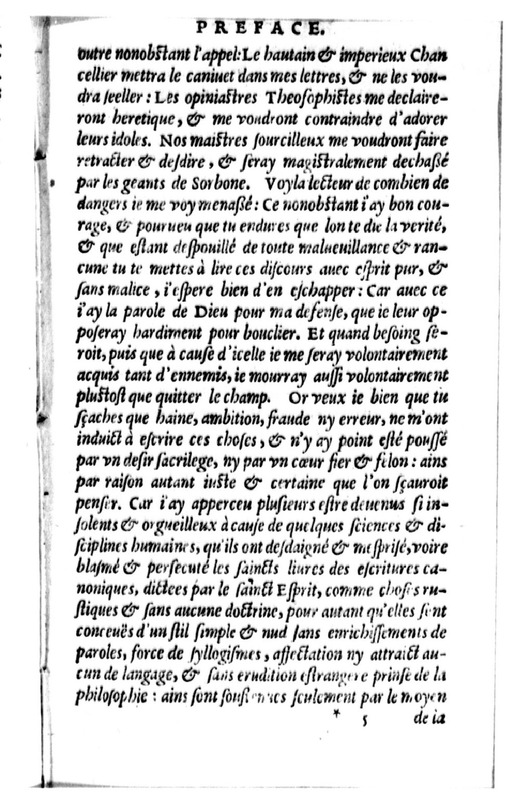 PREFACE.
outre nonobſtant l'appel: Le hautain & imperieux Chan
cellier mettra le caniuet dans mes lettres, & ne les vou-
dra ſeeller : Les opiniaſtres Theoſophiſtes me declaire-
ront heretique, & me voudront contraindre d'adorer
leurs idoles. Nos maiſtres ſourcilleux me voudront faire
retracter & deſdire, & ſeray magiſtralement dechaßé
par les geants de Sorbone. Voyla lecteur de combien de
dangers ie me voy menaßé : Ce nonobſtant i'ay bon cou-
rage, & pourueu que tu endures que lon te die la verité,
& que eſtant deſpouillé de toute malueuillance & ran-
cune tu te mettes à lire ces diſcours auec eſprit pur, &
ſans malice, i'eſpere bien d'en eſchapper : Car auec ce
i'ay la parole de Dieu pour ma defenſe, que ie leur op-
poſeray hardiment pour bouclier. Et quand beſoing ſe-
roit, puis que à cauſe d'icelle ie me ſeray volontairement
acquis tant d'ennemis, ie mourray auſſi volontairement
pluſtoſt que quitter le champ. Or veux ie bien que tu
ſçaches que haine, ambition, fraude ny erreur, ne m'ont
induict à eſcrire ces choſes, & n'y ay point eſté pouſſé
par vn deſir ſacrilege, ny par vn cœur fier & felon : ains
par raiſon autant iuſte & certaine que l'on ſçauroit
penſer. Car i'ay apperceu pluſieurs eſtre deuenus ſi in-
ſolents & orgueilleux à cauſe de quelques ſciences & di-
ſciplines humaines, qu'ils ont deſdaigné & meſpriſé, voire
blaſmé & perſecuté les ſaincts liures des eſcritures ca-
noniques, dictees par le ſainct Eſprit, comme choſes ru-
ſtiques & ſans aucune doctrine, pour autant qu'elles ſont
conceuës d'un ſtil ſimple & nud ſans enrichiſſements de
paroles, force de ſyllogiſmes, affectation ny attraict au-
cun de langage, & ſans erudition eſtrangere prinſe de la
philoſophie : ains ſont ſouſtenues ſeulement par le moyen
* 5 de la